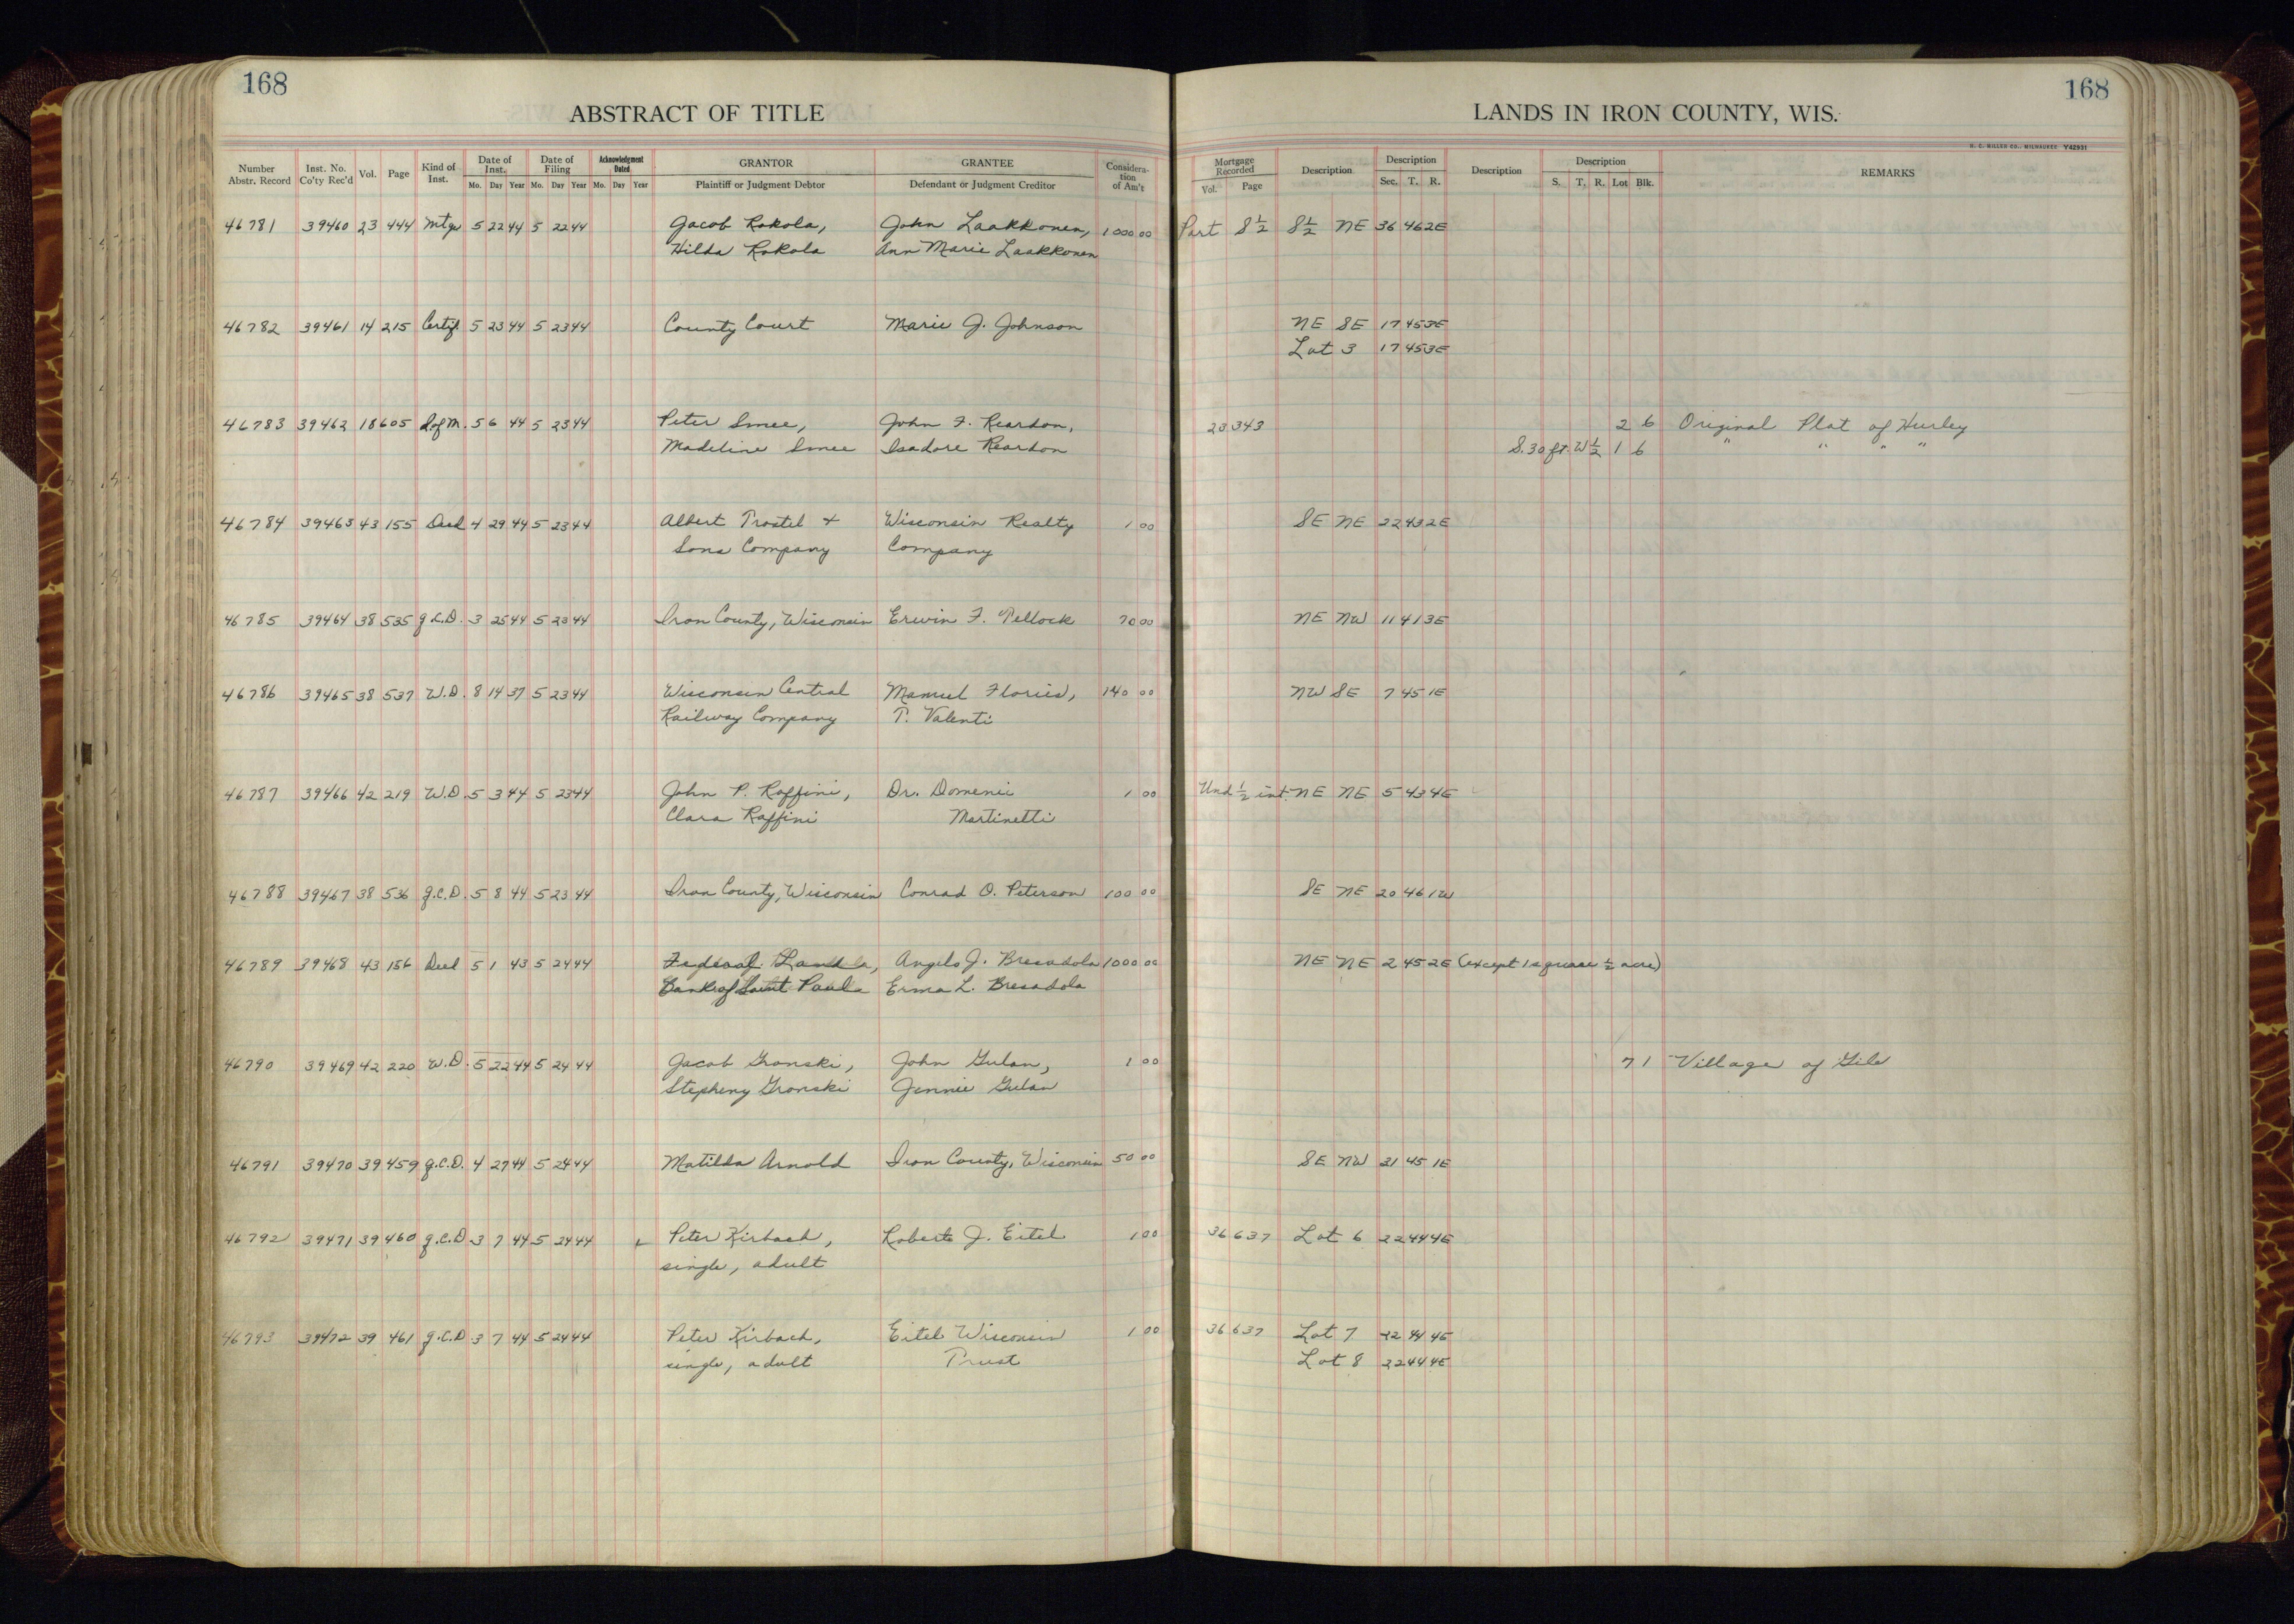 168
168
ABSTRACT OF TITLE
LANDS IN IRON COUNTY, WIS.
H. C. MILLER CO., MILWAUKEE Y42931
Number Abstr. Record Inst. No. Co'ty Rec'd Vol. Page Kind of Inst. Date of Inst. Mo. Day Year Date of Filing Mo. Day Year Acknowledgment Dated Mo. Day Year GRANTOR Plaintiff or Judgment Debtor GRANTEE Defendant or Judgment Creditor Considera-tion of Am't Mortgage Recorded Vol. Page Description Description Sec. T. R. Description Description S. T. R. Lot Blk. REMARKS
46781 39460 23 444 Mtge 5 22 44 5 22 44 Jacob Kokola, John Laakkonen, 1000 00 Part S½ S½ NE 36 46 2E
Hilda Kokola Ann Marie Laakkonen
46782 39461 14 215 Certif. 5 23 44 5 23 44 County Court Marie J. Johnson NE SE 17 45 3E
Lot 3 17 45 3E
46783 39462 18 605 S of M. 5 6 44 5 23 44 Peter Smee, John F. Reardon, 23 343 2 6 Original Plat of Hurley
Madeline Smee Isadore Reardon S. 30 ft. W½ 1 6 " " " "
46784 39463 43 155 Deed 4 29 44 5 23 44 Albert Trostel + Wisconsin Realty 1 00 SE NE 22 43 2E
Sons Company Company
46785 39464 38 535 q.c.D. 3 25 44 5 23 44 Iron County, Wisconsin Erwin F. Pellock 70 00 NE NW 11 41 3E
46786 39465 38 537 W.D. 8 14 37 5 23 44 Wisconsin Central 140 00 NW SE 7 45 1E
Railway Company P. Valenti
46787 39466 42 219 W.D. 5 3 44 5 23 44 John P. Raffini, Dr. Domenic 1 00 Und ½ int. NE NE 5 43 4E
Clara Raffini Martinetti
46788 39467 38 536 q.C.D. 5 8 44 5 23 44 Iron County, Wisconsin Conrad O. Peterson 100 00 SE NE 20 46 1W
46789 39468 43 156 Deed 5 1 43 5 24 44 Federal Land Angelo J. Bresadola 1000 00 NE NE 2 45 2E (except 1 square ½ acre)
Bank of Saint Paul Erma L. Bresadola
46790 39469 42 220 W.D. 5 22 44 5 24 44 Jacob Gronski, John Gulan, 1 00 7 1 Village of Gile
Stepheny Gronski Jennie Gulan
46791 39470 39 459 q.C.D. 4 27 44 5 24 44 Matilda Arnold Iron County, Wisconsin 50 00 SE NW 31 45 1E
46792 39471 39 460 q.C.D 3 7 44 5 24 44 Peter Kirbach, Robert J. Eitel 1 00 36 637 Lot 6 22 44 4E
single, adult
46793 39472 39 461 q.C.D 3 7 44 5 24 44 Peter Kirbach, Eitel Wisconsin 1 00 36 637 Lot 7 22 44 4E
single, adult Trust Lot 8 22 44 4E